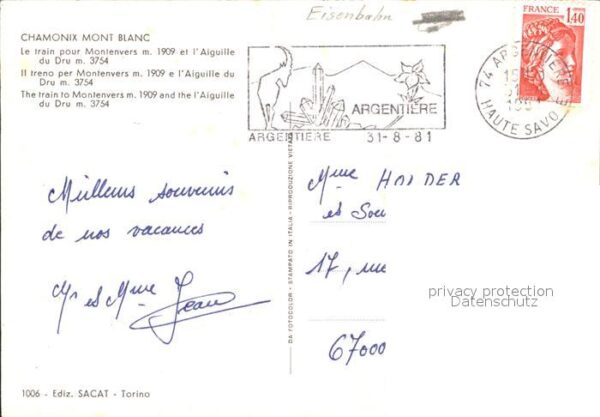 Eisenbahn
CHAMONIX MONT BLANC
Le train pour Montenvers m. 1909 et l'Aiguille
du Dru m. 3754
Il treno per Montenvers m. 1909 e l'Aiguille du
Du Dru m. 3754
The train to Montenvers m. 1909 and the l'Aiguille
du Dru m. 3754
FRANCE
1,40
ARGENTIERE
ARGENTIERE 31-8-81
74 ARGENTIERE
HAUTE SAVOIE
Meilleurs souvenirs
de nos vacances
Mr et Mme Jean
DA FOTOCOLOR - STAMPATO IN ITALIA - RIPRODUZIONE VIETATA
Mme HAIDER
et
17, rue
67000
privacy protection
Datenschutz
1006 - Ediz. SACAT - Torino